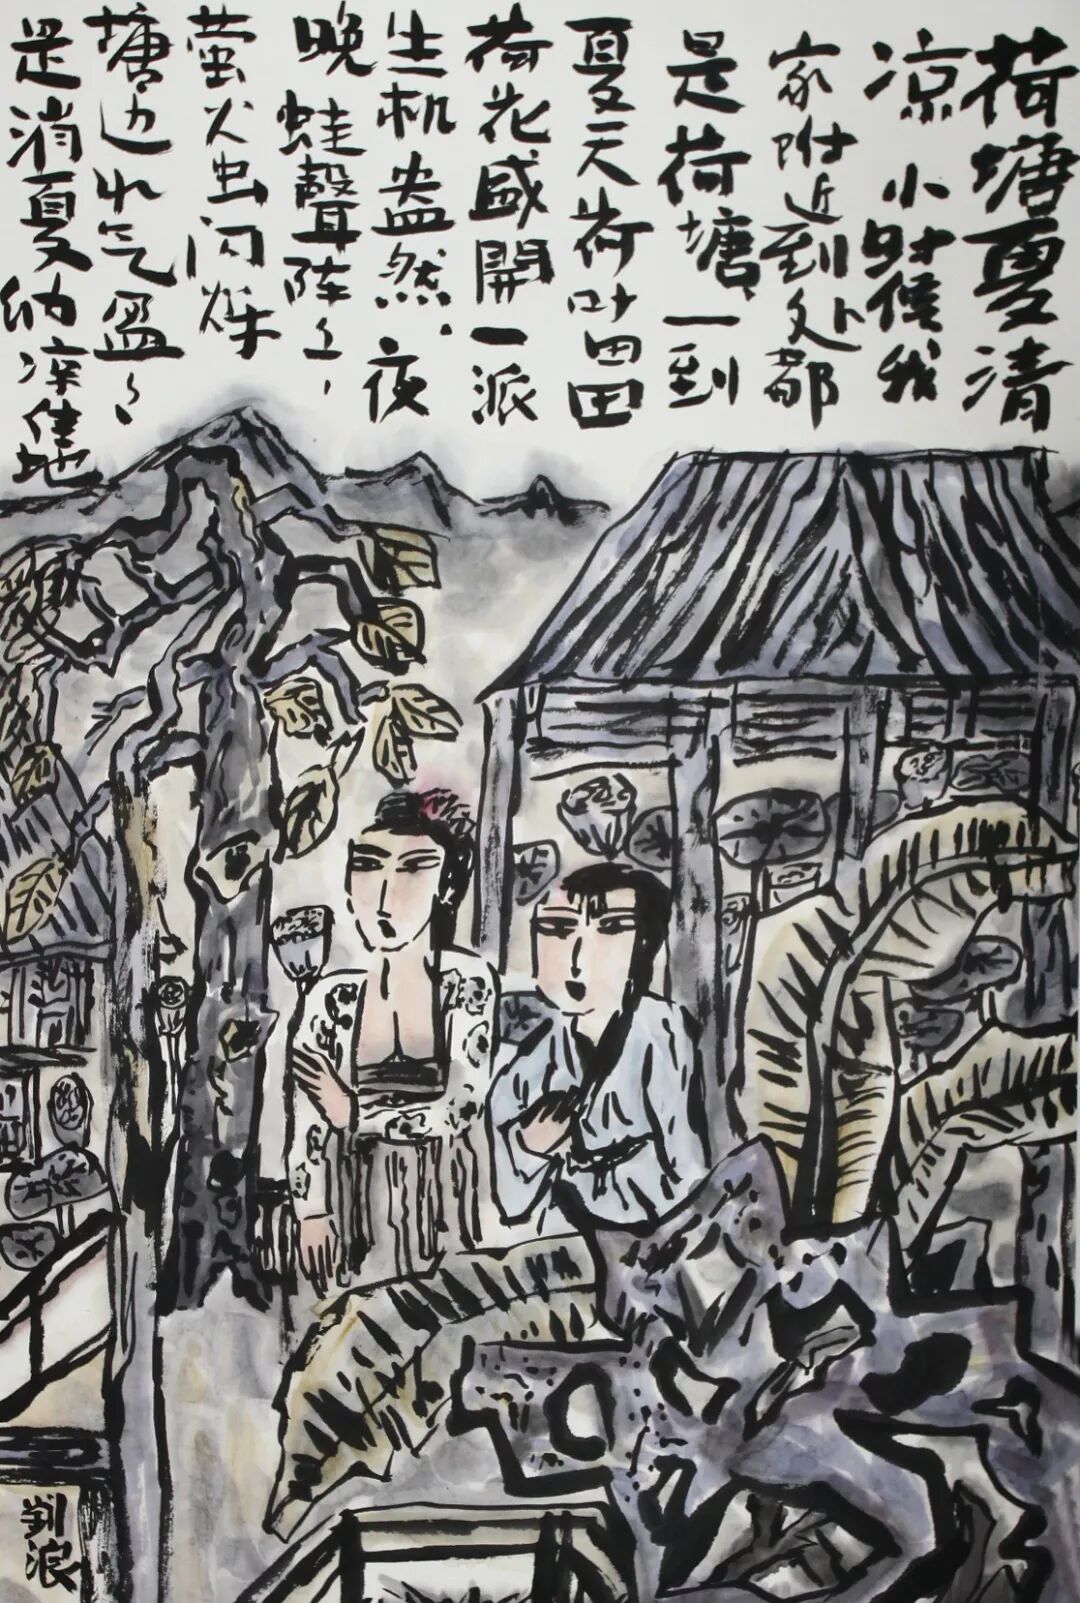 荷塘夏清
凉 小时候我
家附近到处都
是荷塘、一到
夏天荷叶田田
荷花盛開一派
生机盎然.夜
晚 蛙聲阵々,
萤火虫闪烁
塘边水气盈々
是消夏纳凉佳地
刘浪